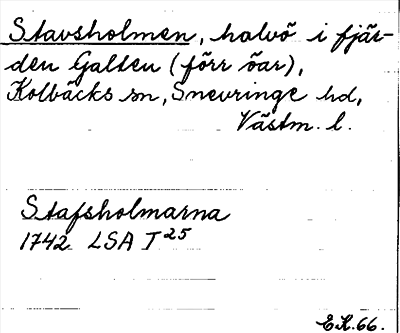 Stavsholmen, halvö i fjär-
den Galten (förr öar),
Kolbäcks sn, Snevringe hd,
Västm. l.
Stafsholmarna
1742 LSA T 25
E.K. 66.